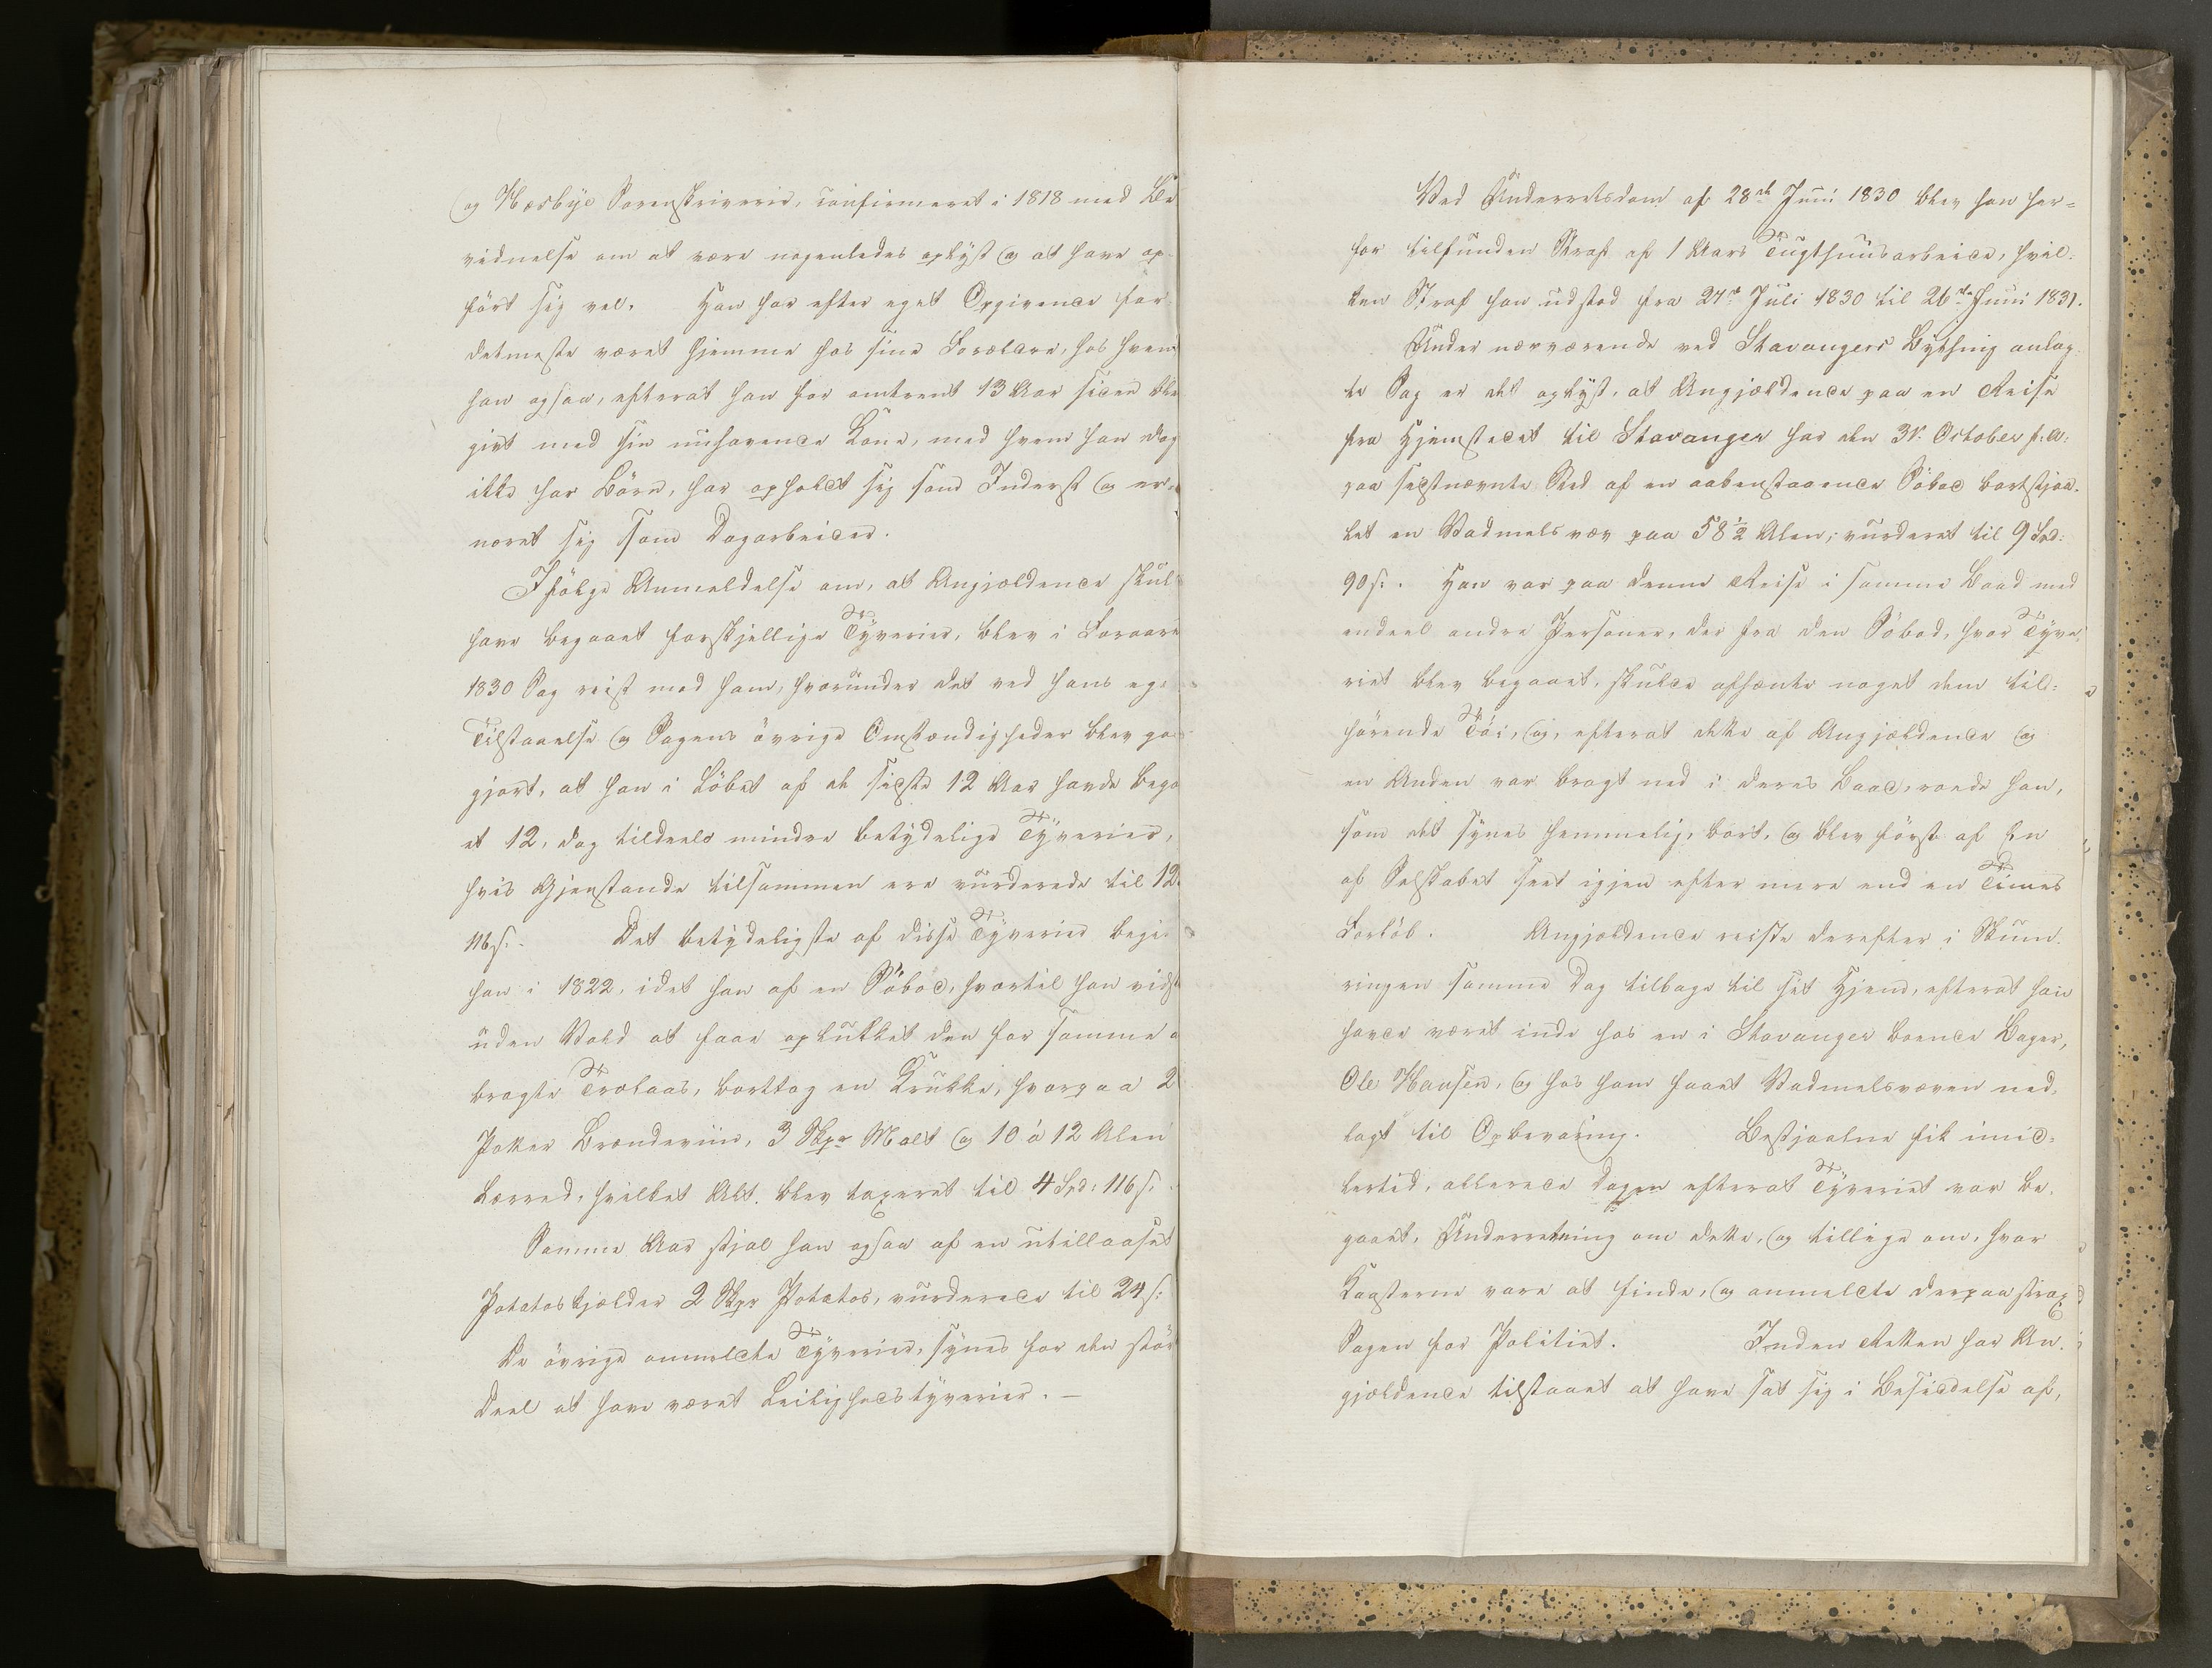 og Hesbye Sorenskriverie, confirmeret i 1818 med Be
vidnelse om at være nogenledes oplyst og at have op-
ført sig vel. Han har efter eget Opgivende for
detmeste været hjemme hos sine Forældre, hos hvem
han ogsaa, efterat han for omtrent 13 Aar siden ble
givt med sin nuhavende Kone, med hvem han dog
ikke har Børn, har opholdt sig som Inderst og er-
næret sig som Dagarbeider.
Ifølge Anmeldelse om, at Angjældende skul
have begaaet forskjellige Tyverier, blev i Foraaret
1830 Sag reist mod ham, hvorunder det ved hans ege
Tilstaaelse og Sagens øvrige Omstændigheder blev go
gjort, at han i Løbet af de sidste 12 Aar havde bega
et 12, dog tildeels mindre betydelige Tyverier,
hvis Gjenstande tilsammen ere vurderede til 12
116 s. Det betydeligste af disse Tyverier begik
han i 1822, idet han af en Søbod, hvortil han vidste
uden Vold at faae oplukket den for samme a
bragte Trælaas, borttog en Krukke, hvorpaa 2
Potter Brændeviin, 3 Skpr Malt og 10 à 12 Alen
Lærred, hvilket Alt blev taxeret til 4 Spd: 116 s.
Samme Aar stjal han ogsaa af en utillaaset
Potatoskjælder 2 Skpr Potatos, vurderede til 24 s:
De øvrige anmeldte Tyverier, synes for den stør
Deel at have været Leilighedstyverier. —
Ved Underretsdom af 28de Juni 1830 blev han her-
for tilfunden Straf af 1 Aars Tugthuusarbeide, hvil-
ken Straf han udstod fra 27de Juli 1830 til 26de Juni 1831.
Under nærværende ved Stavangers Bything anlag-
te Sag er det oplyst, at Angjældende paa en Reise
fra Hjemstedet til Stavanger har den 31. October f: A:
paa sidstnævnte Sted af en aabenstaaende Søbod bortstjaa-
let en Vadmelsvæv paa 58½ Alen, vurderet til 9 Spd:
90 s:. Han var paa denne Reise i samme Baad med
endeel andre Personer, der fra den Søbod, hvor Tyve-
riet blev begaaet, skulde afhente noget dem til-
hørende Tøi, og, efterat dette af Angjældende og
en Anden var bragt ned i deres Baad, roede han,
som det synes hemmelig, bort, og blev først af En
af Selskabet seet igjen efter mere end en Times
Forløb. Angjældende reiste derefter i Skum-
ringen samme Dag tilbage til sit Hjem, efterat han
havde været inde hos en i Stavanger boende Bager,
Ole Hansen, og hos ham faaet Vadmelsvæven ned-
lagt til Opbevaring. Bestjaalne fik imid-
lertid, allerede Dagen efterat Tyveriet var be-
gaaet, Underretning om dette, og tillige om, hvor
Kosterne vare at finde, og anmeldte derpaa strax
Sagen for Politiet. Inden Retten har An-
gjældende tilstaaet at have sat sig i Besiddelse af,